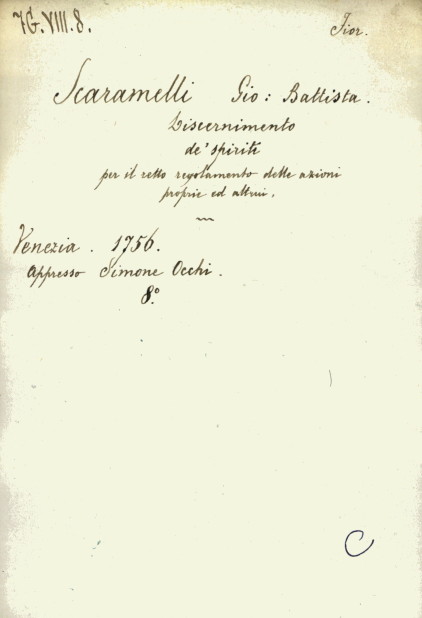 7G.VIII.8.
Fior.
Scaramelli Gio: Battista.
Discernimento
de' spiriti
per il retto regolamento delle azioni
proprie ed altrui.
Venezia. 1756.
Appresso Simone Occhi.
8.°
C